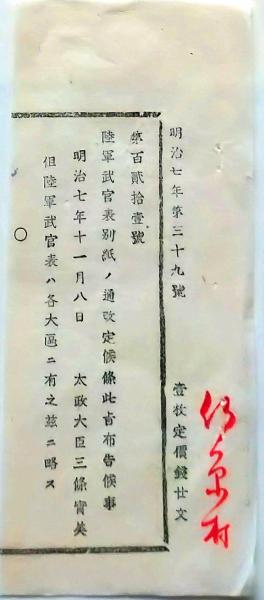 明治七年第三十九號　壹枚定價錢廿文
第百貳拾壹號
陸軍武官表別紙ノ通改定候條此旨布告候事
明治七年十一月八日　太政大臣三條實美
但陸軍武官表ハ各大區ニ有之玆ニ略ス
○